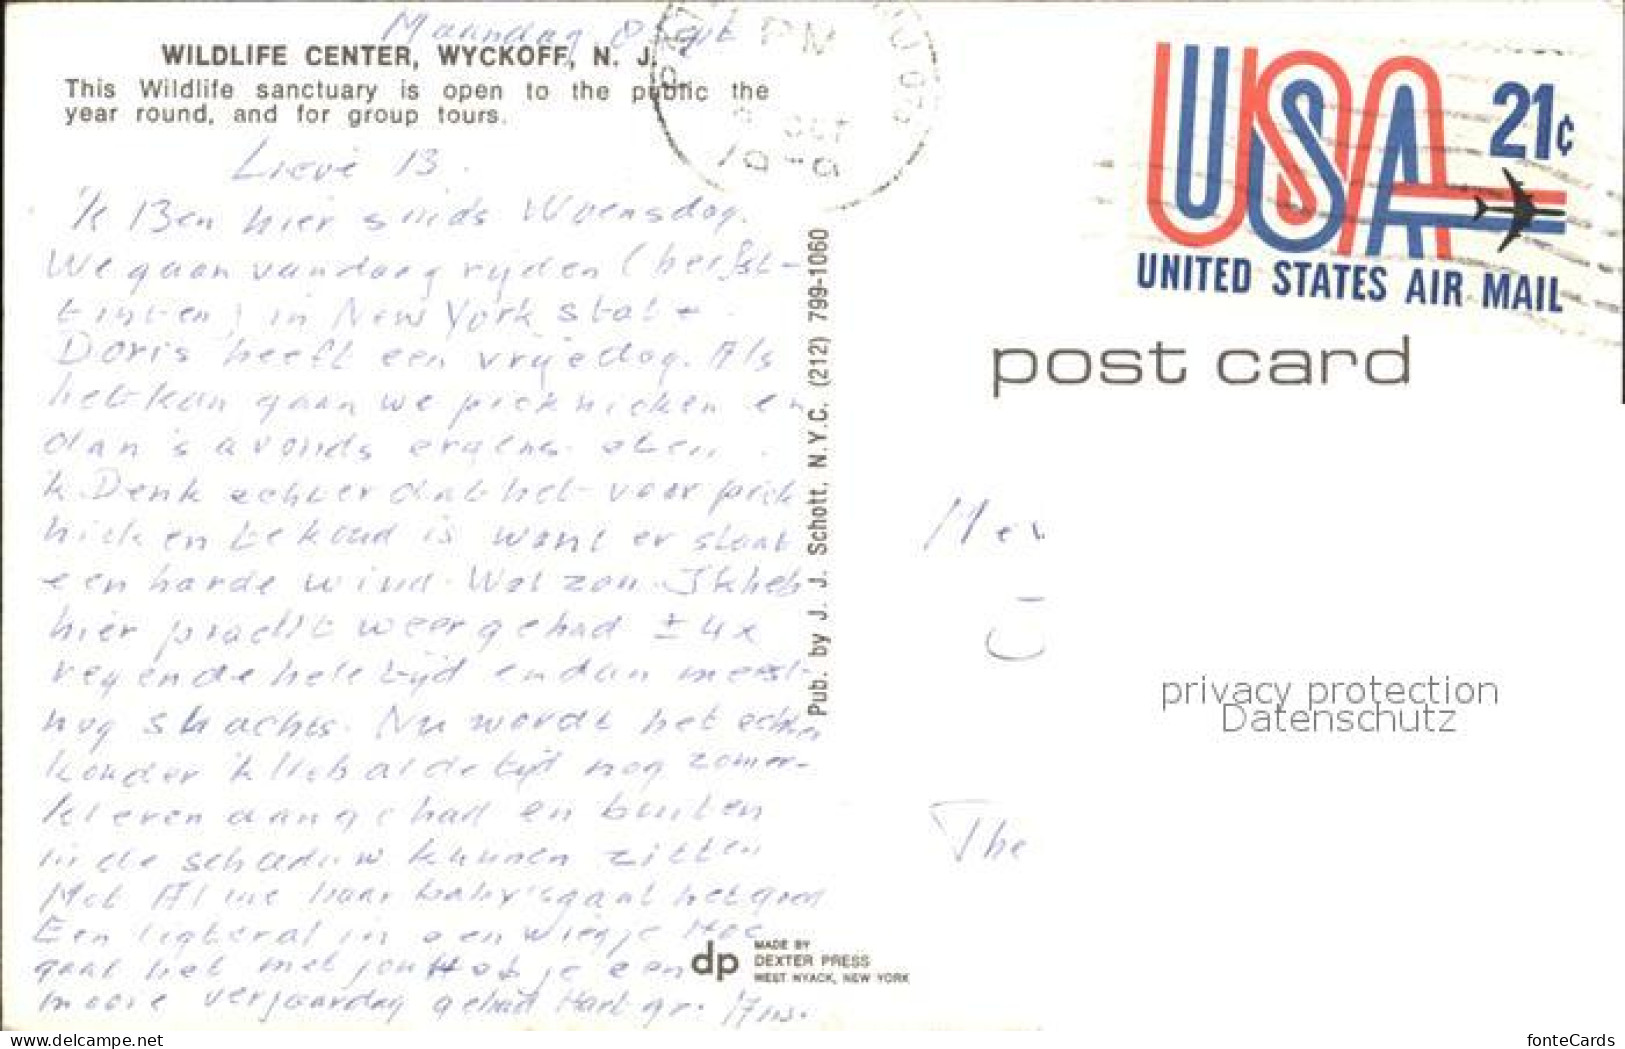 Maandag 8 
WILDLIFE CENTER, WYCKOFF, N. J.
This Wildlife sanctuary is open to the public the
year round, and for group tours.
Lieve B.
'k Ben hier sinds Woensdag.
We gaan vandaag rijden (herfst-
tinten) in New York State.
Doris heeft een vrije dag. Als
het kan gaan we picknicken en
dan 's avonds ergens eten.
'k Denk echter dat het voor pick
nicken te koud is want er staat
een harde wind. Wel zon. Ik heb
hier pracht weer gehad ± 4x
regen de hele tijd en dan meest
nog 's nachts. Nu wordt het echter
kouder 'k heb al de tijd nog zomer-
kleren aangehad en buiten
in de schaduw kunnen zitten
Met haar baby's gaat het goed
Een ligt er al in een wiegje Hoe
gaat het met jou Heb je een
mooie verjaardag gehad Hart gr.
PM
OCT
USA 21c
UNITED STATES AIR MAIL
post card
Pub. by J. J. Schott, N.Y.C. (212) 799-1060
Mev
The
privacy protection
Datenschutz
dp
MADE BY
DEXTER PRESS
WEST NYACK, NEW YORK
www.delcampe.net
fonteCards